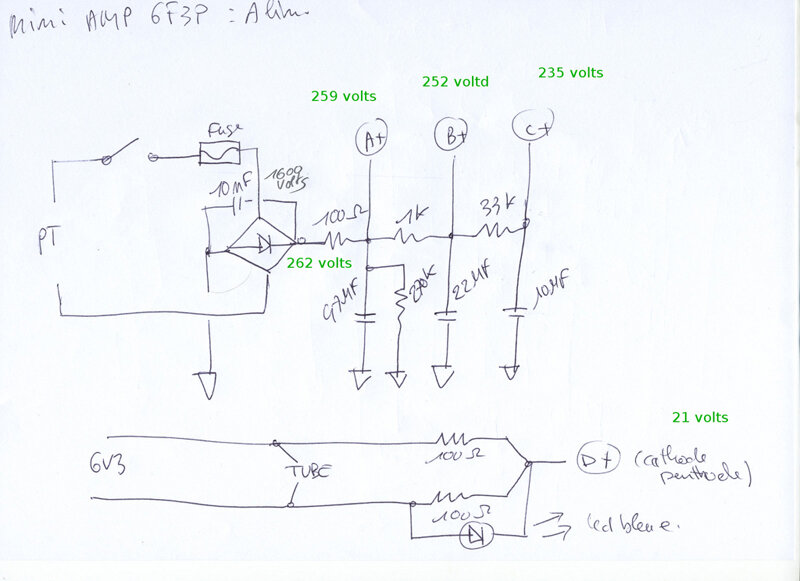 mini AMP 6F3P : Alim.
235 volts
252 voltd
259 volts
C+
B+
A+
Fuse
10nF
1600 volts
PT
100Ω
1K
33K
262 volts
47µF
270K
22µF
10µF
21 volts
6V3
TUBE
100Ω
D+ (cathode
penthode)
100Ω
led bleue.